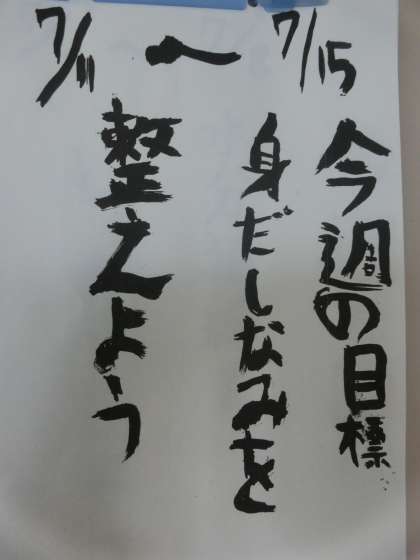 7/11 〜 7/15
今週の目標
身だしなみを
整えよう